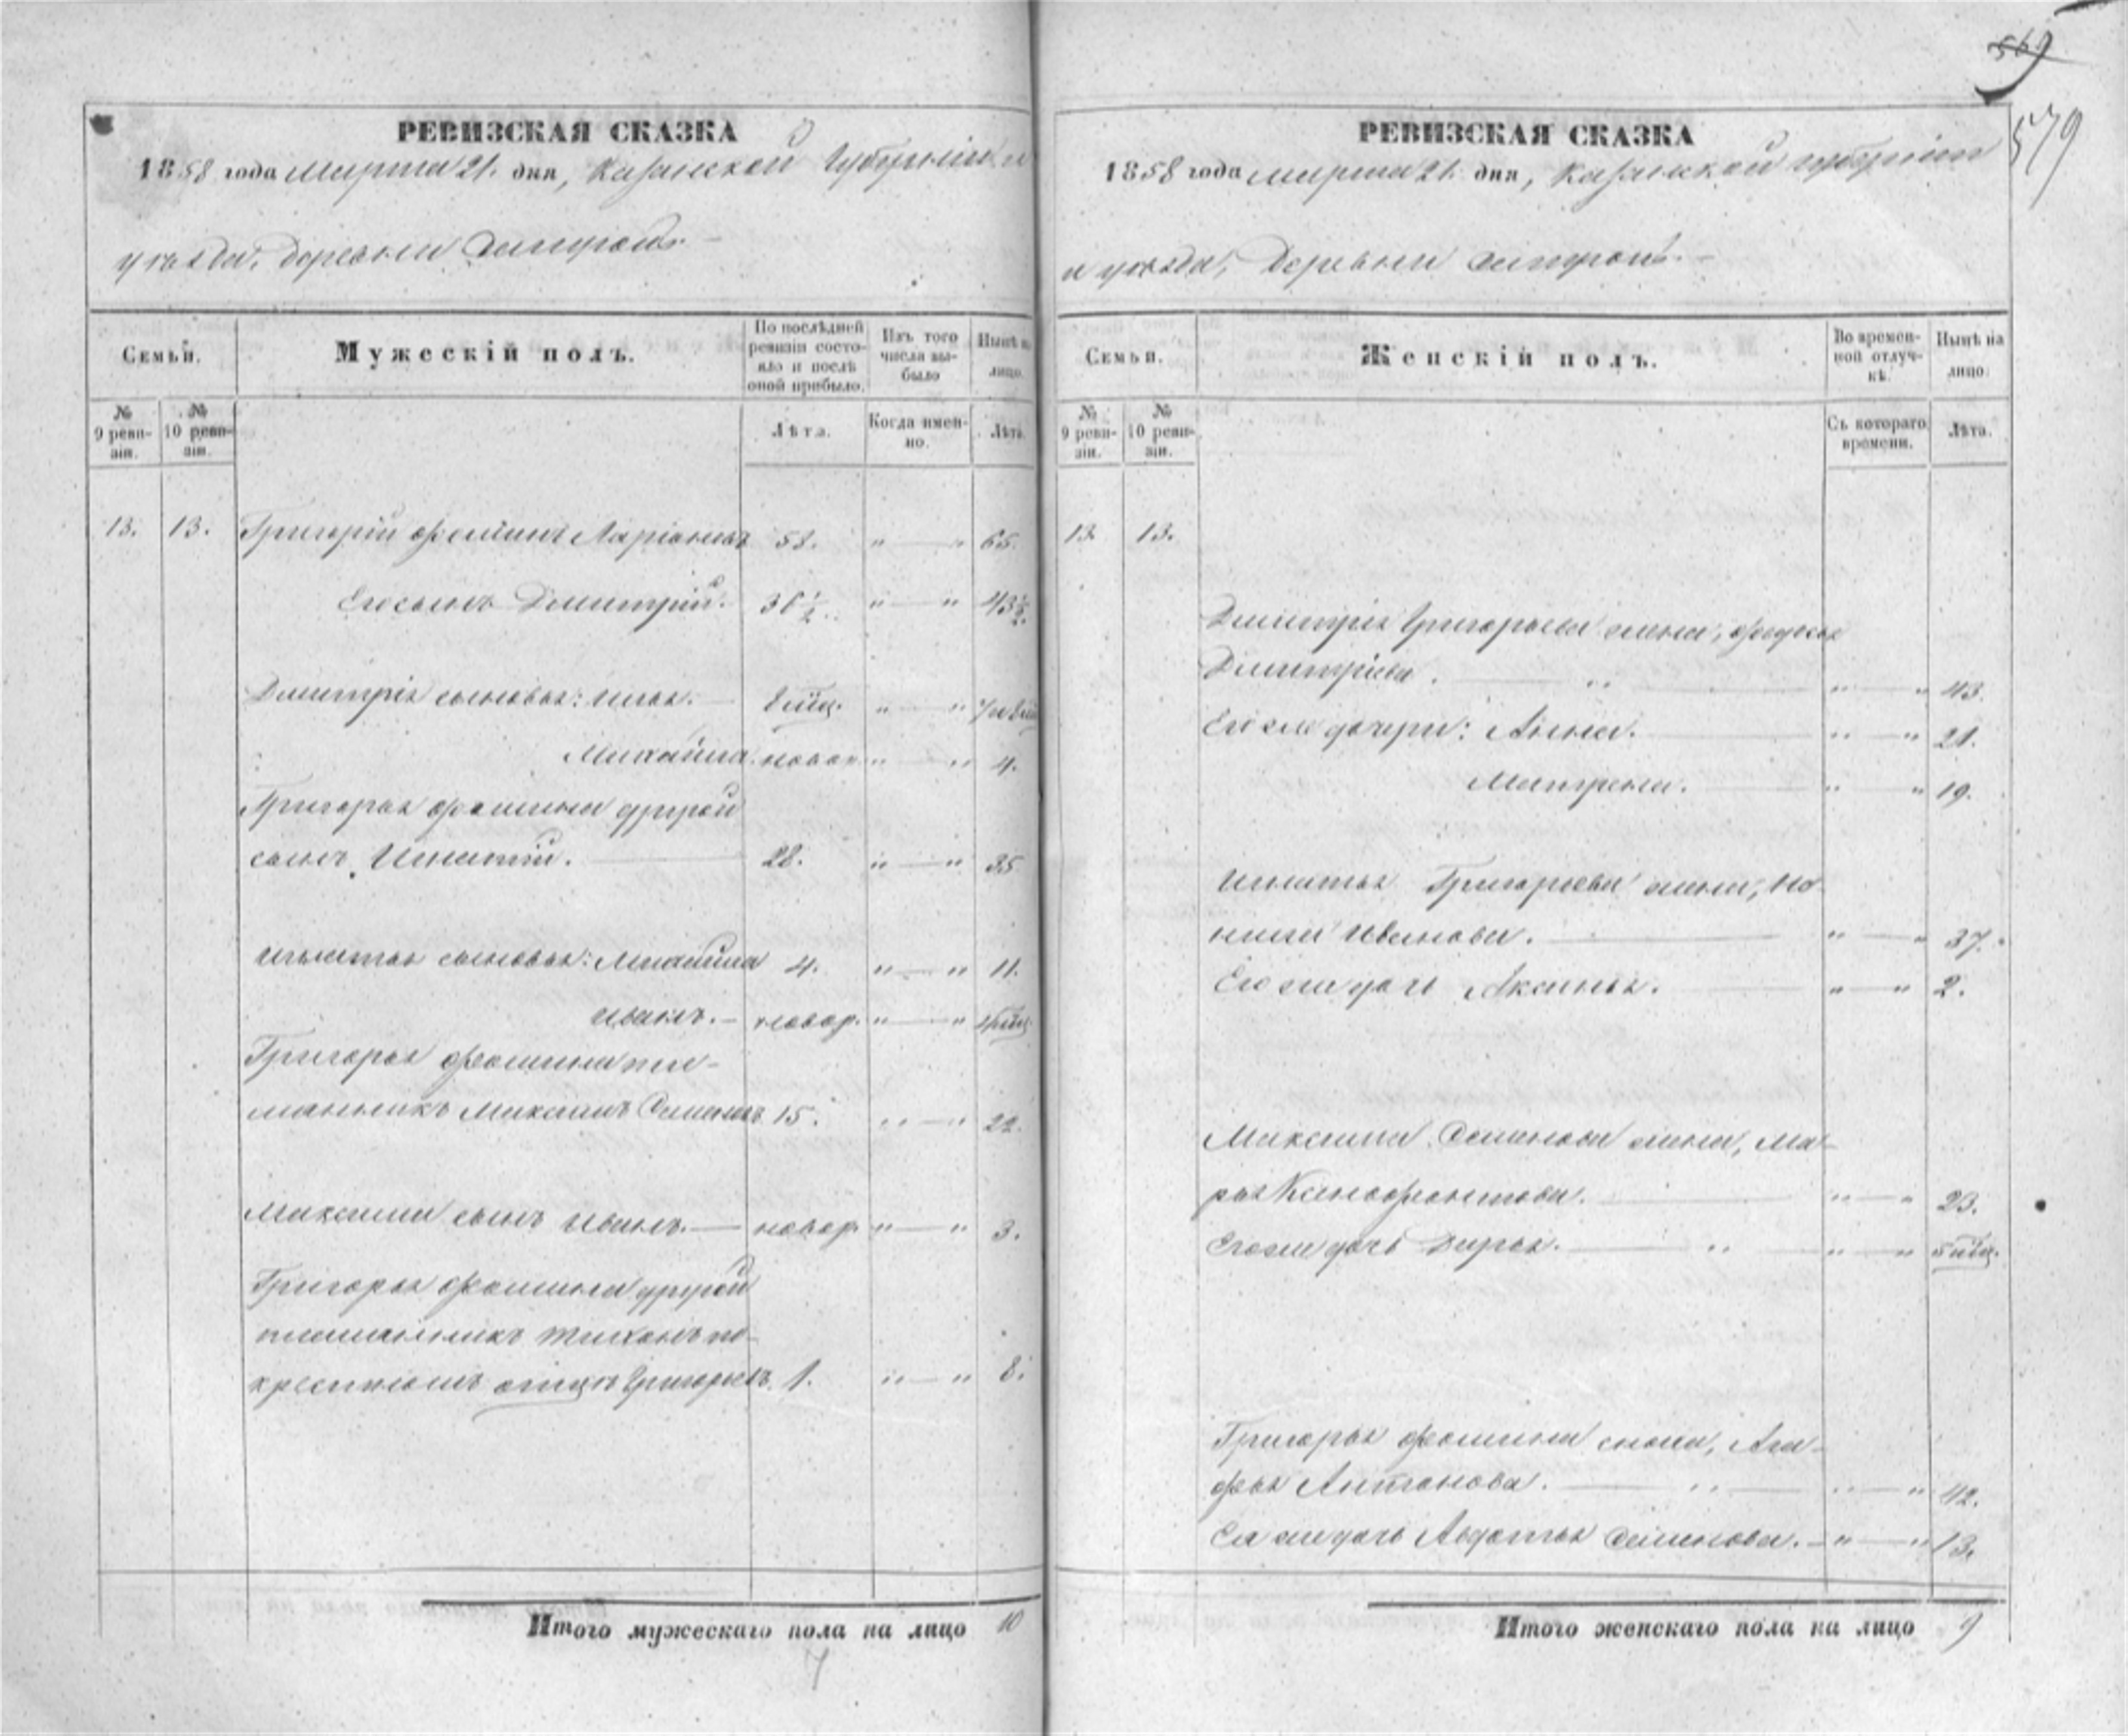 569
579
РЕВИЗСКАЯ СКАЗКА
1858 года марта 21. дня, Казанской Губерніи и
уѣзда, деревни
Семьи.
Мужескій полъ.
По послѣдней ревизіи состояло и послѣ оной прибыло.
Изъ того числа выбыло
Нынѣ на лицо.
№ 9 ревизіи.
№ 10 ревизіи.
Лѣта.
Когда именно.
Лѣта.
13. 13. Григорій Фоминъ Ларіоновъ 58. " — " 65.
Его сынъ Дмитрій. 36½. " — " 43½.
Дмитрія сыновья: Илья. — 8 мѣц. " — "
Михайла. новор. " — " 4.
Григорья Фомина другой
сынъ Игнатій. — 28. " — " 35
Игнатья сыновья: Михайла 4. " — " 11.
Иванъ. — новор. " — "
Григорья Фомина пле-
мянникъ Максимъ Семеновъ 15. " — " 22.
Максима сынъ Иванъ. — новор. " — " 3.
Григорья Фомина другой
племянникъ Тихонъ по
крестномъ отцѣ Григорьевъ. 1. " — " 8.
Итого мужескаго пола на лицо 10
7
РЕВИЗСКАЯ СКАЗКА
1858 года марта 21. дня, Казанской губерніи
и уѣзда, Деревни
Семьи.
Женскій полъ.
Во временной отлучкѣ.
Нынѣ на лицо.
№ 9 ревизіи.
№ 10 ревизіи.
Съ котораго времени.
Лѣта.
13. 13.
Дмитрія Григорьева жена, Федосья
Дмитріева. — " — " — " 43.
Его же дочери: Анна. — " — " 21.
Матрена. — " — " 19.
Игнатья Григорьева жена,
Иванова. — " — " 37.
Его же дочь Аксинья. — " — " 2.
Максима Семенова жена, Ма-
рья Ксенофонтова. — " — " 23.
Его же дочь Дарья. — " — " — " 5 мѣц.
Григорья Фомина сноха, Ага-
фья Антонова. — " — " — " 42.
Ея же дочь Авдотья Семенова. — " — " 13.
Итого женскаго пола на лицо 9